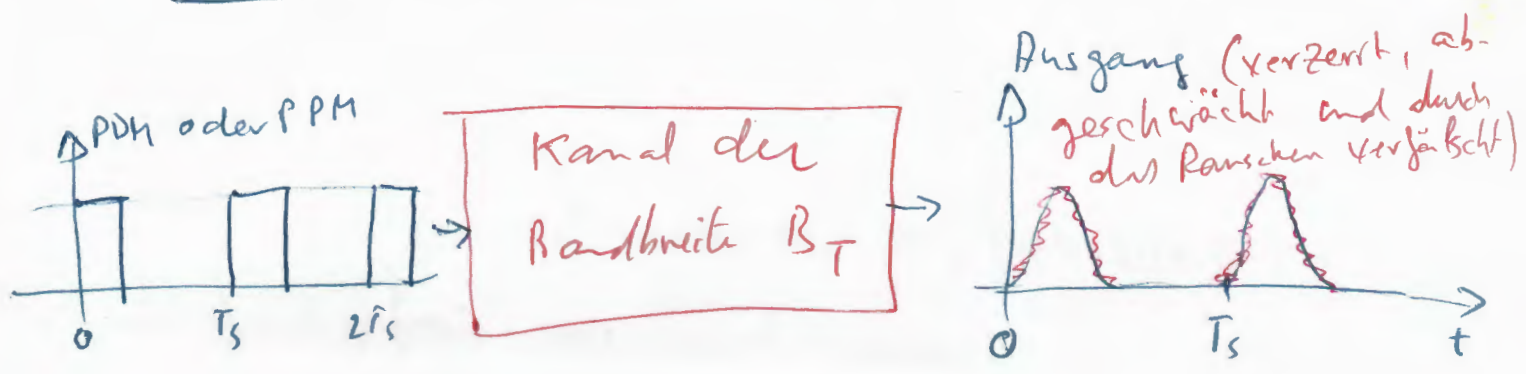 PDM oder PPM
0
Ts
2Ts
Kanal der
Bandbreite B_T
Ausgang (verzerrt, ab-
geschwächt und durch
das Rauschen verfälscht)
0
Ts
t